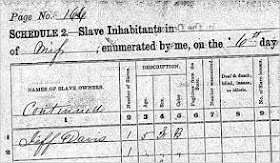 Page No. 166
SCHEDULE 2.—Slave Inhabitants in
of Miss, enumerated by me, on the 10th day
NAMES OF SLAVE OWNERS.
Number of Slaves.
DESCRIPTION.
Age.
Sex.
Color.
Fugitives from the State.
Number manumitted.
Deaf & dumb, blind, insane, or idiotic.
1 2 3 4 5 6 7 8
Continued
1 Jeff Davis 1 5 M B
2 1